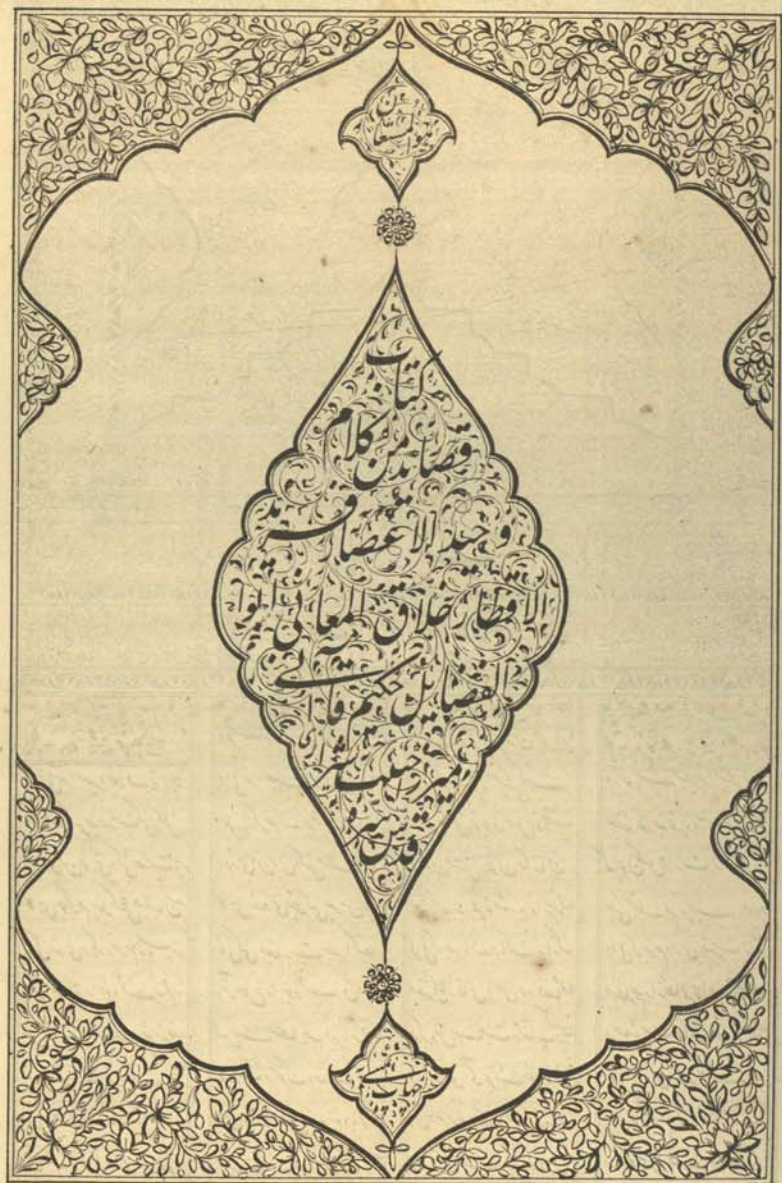 هو المستعان
کتاب
قصائد من کلام
وحید الاعصار فرید
الاقطار خلاق المعانی ابو
الفضایل حکیم قاآنی
میرزا حبیب شیرازی
قدس سره